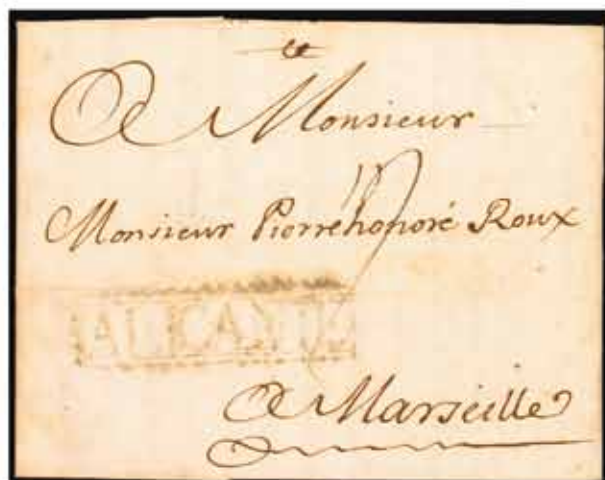 A Monsieur
Monsieur Pierrehonoré Roux
ALICANTE
A Marseille